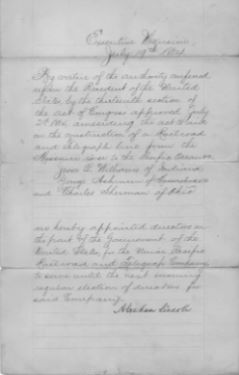 Executive Mansion,
July 19th 1864
By virtue of the authority conferred
upon the President of the United
States, by the thirteenth section of
the act of Congress approved July
2d 1864 amending the act to aid
in the construction of a Railroad
and telegraph line from the
Missouri river to the Pacific Ocean
Jesse L. Williams of Indiana
George Ashmun of
and Charles Sherman of Ohio
are hereby appointed directors on
the part of the Government of the
United States, for the Union Pacific
Railroad and Telegraph Company,
to serve until the next ensuing
regular election of directors for
said Company.
Abraham Lincoln